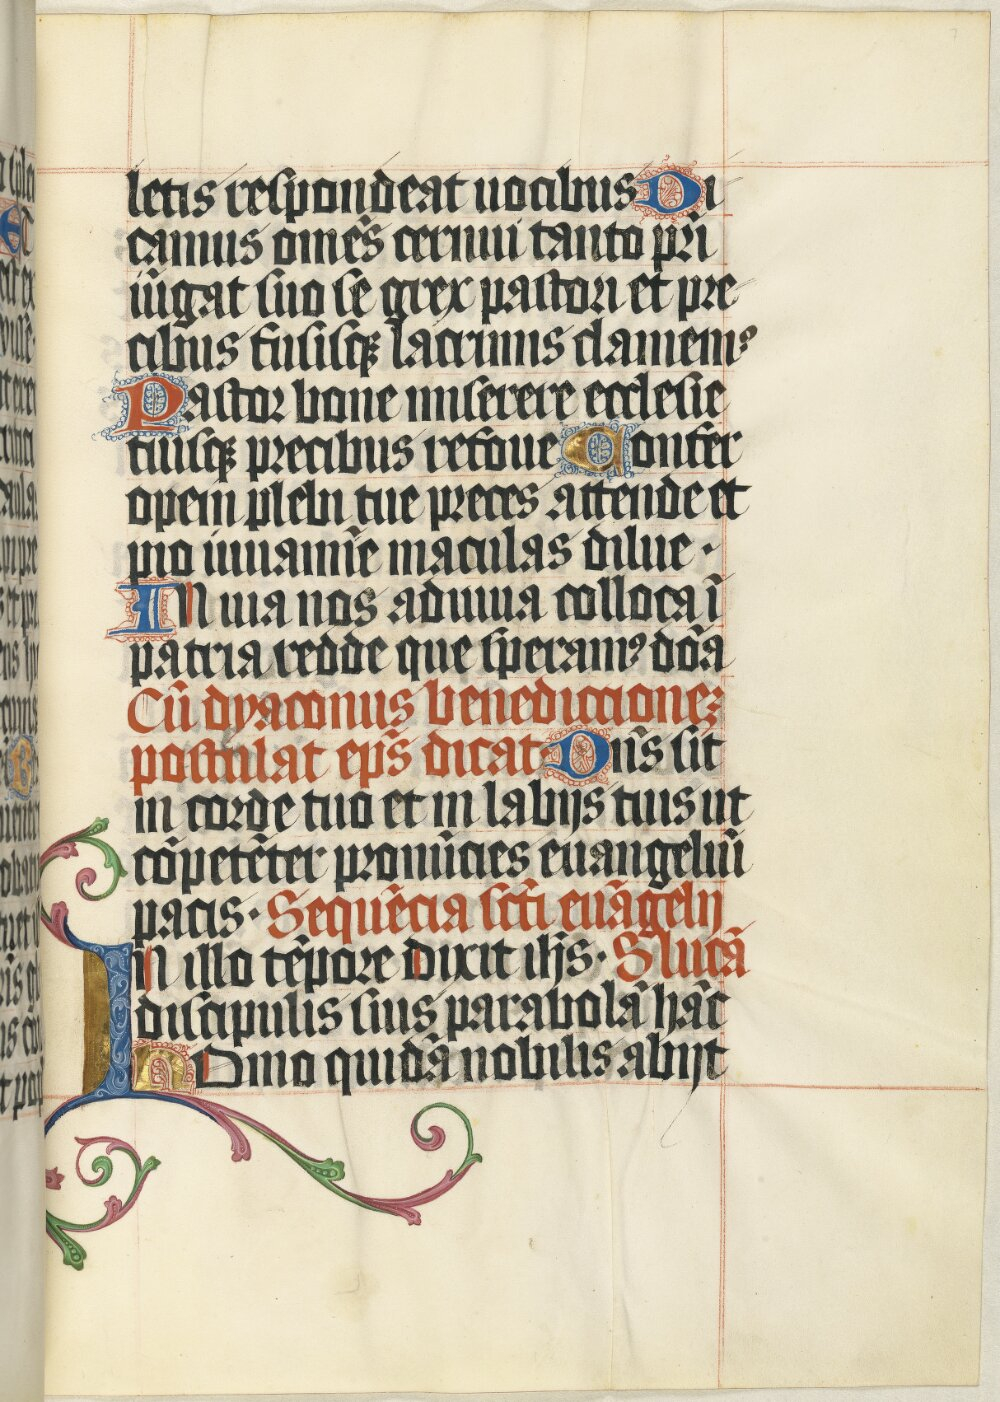 letis respondeat uocibus Di
camus om̄es cernui tanto pr̄i
iūgat suo se grex pastori et pre
cibus fusisqꝫ lacrimis clamemꝰ
Pastor bone miserere ecclesie
tuisqꝫ precibus refoue Confer
opem plebi tue preces attende et
pio iuuamīe maculas dilue ·
IN uia nos adiuua colloca ī
patria redde que speramꝰ dōa
Cū dyaconus benediccionez
postulat ep̄s dicat Dn̄s sit
in corde tuo et in labijs tuis ut
cōpetēter pronūcies euangeliū
pacis · Sequēcia sct̄i euāgelij
IN illo tēpore dixit ih̄s · S lucā
discipulis suis parabolā hāc
hOmo quidā nobilis abijt